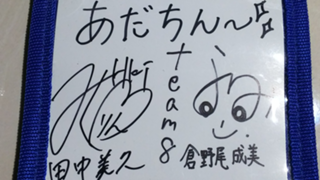 あだちん〜!!
team8
田中美久
倉野尾成美